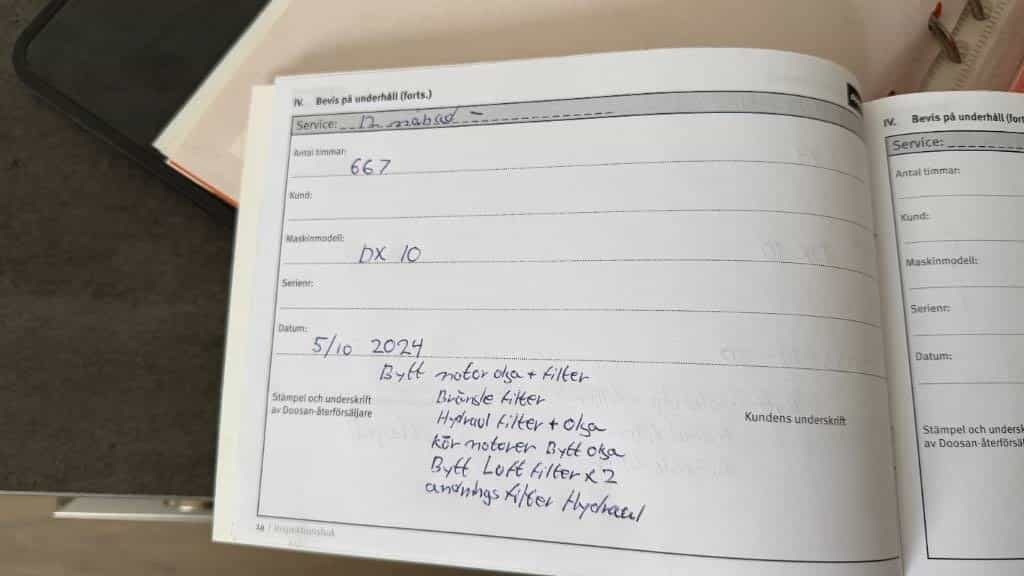 IV. Bevis på underhåll (forts.)
Service: 12 månad -
Antal timmar:
667
Kund:
Maskinmodell:
DX 10
Serienr:
Datum:
5/10 2024
Bytt motor olja + filter
Bränsle filter
Hydraul filter + olja
kör motorer Bytt olja
Bytt Luft filter x 2
andnings filter Hydraul
Stämpel och underskrift
av Doosan-återförsäljare
Kundens underskrift
14 / Inspektionsbok
IV. Bevis på underhåll (fort
Service:
Antal timmar:
Kund:
Maskinmodell:
Serienr:
Datum:
Stämpel och undersk
av Doosan-återförsäl